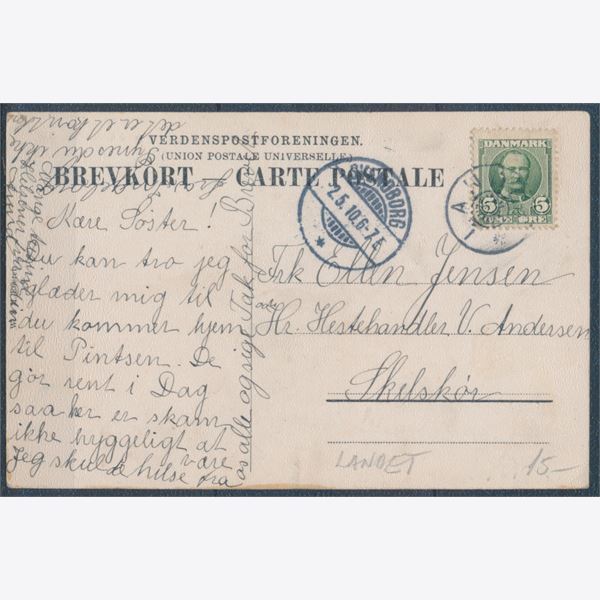 VERDENSPOSTFORENINGEN.
(UNION POSTALE UNIVERSELLE.)
BREVKORT – CARTE POSTALE
DANMARK
5 5
ØRE
SVENDBORG
2.5.10.6-7 E
Kære Søster!
Du kan tro jeg
glæder mig til
du kommer hjem
til Pintsen. De
gør rent i Dag
saa her er skam
ikke hyggeligt at
være
Jeg skulde hilse fra
os alle og sige Tak for Brev
Frk Ellen Jensen
adr Hr. Hestehandler V. Andersen
Skelskør
LANDET
15-